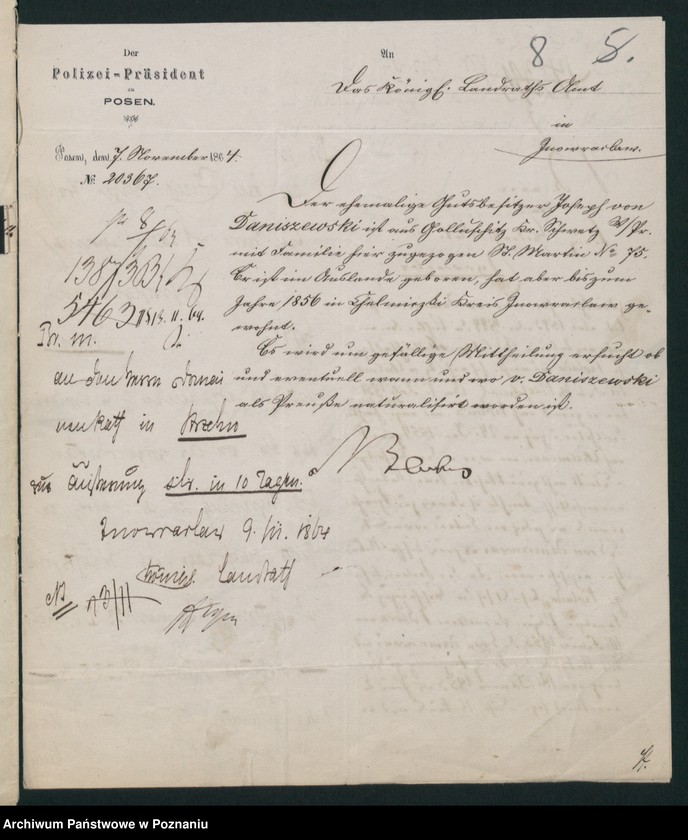 8 8.
Der
Polizei-Präsident
zu
POSEN.
An
Das Königl. Landraths Amt
in
Inowraclaw.
Posen, den 7. November 1864.
№ 20367.
Der ehemalige Gutsbesitzer Joseph von
Daniszewski ist aus Golluschitz Kr. Schwetz W/Pr.
mit Familie hier zugezogen St. Martin No 75.
Er ist im Auslande geboren, hat aber bis zum
Jahre 1856 in Chelmiczki Kreis Inowraclaw ge-
wohnt.
Es wird um gefällige Mittheilung ersucht ob
und eventuell wann und wo v. Daniszewski
als Preuße naturalisirt worden ist.
5463
Br. m.
an den Herrn Domai
nenrath in Strzelno
zur Äußerung in 10 Tagen.
Inowraclaw 9. 1864
Königl. Landrath
Archiwum Państwowe w Poznaniu